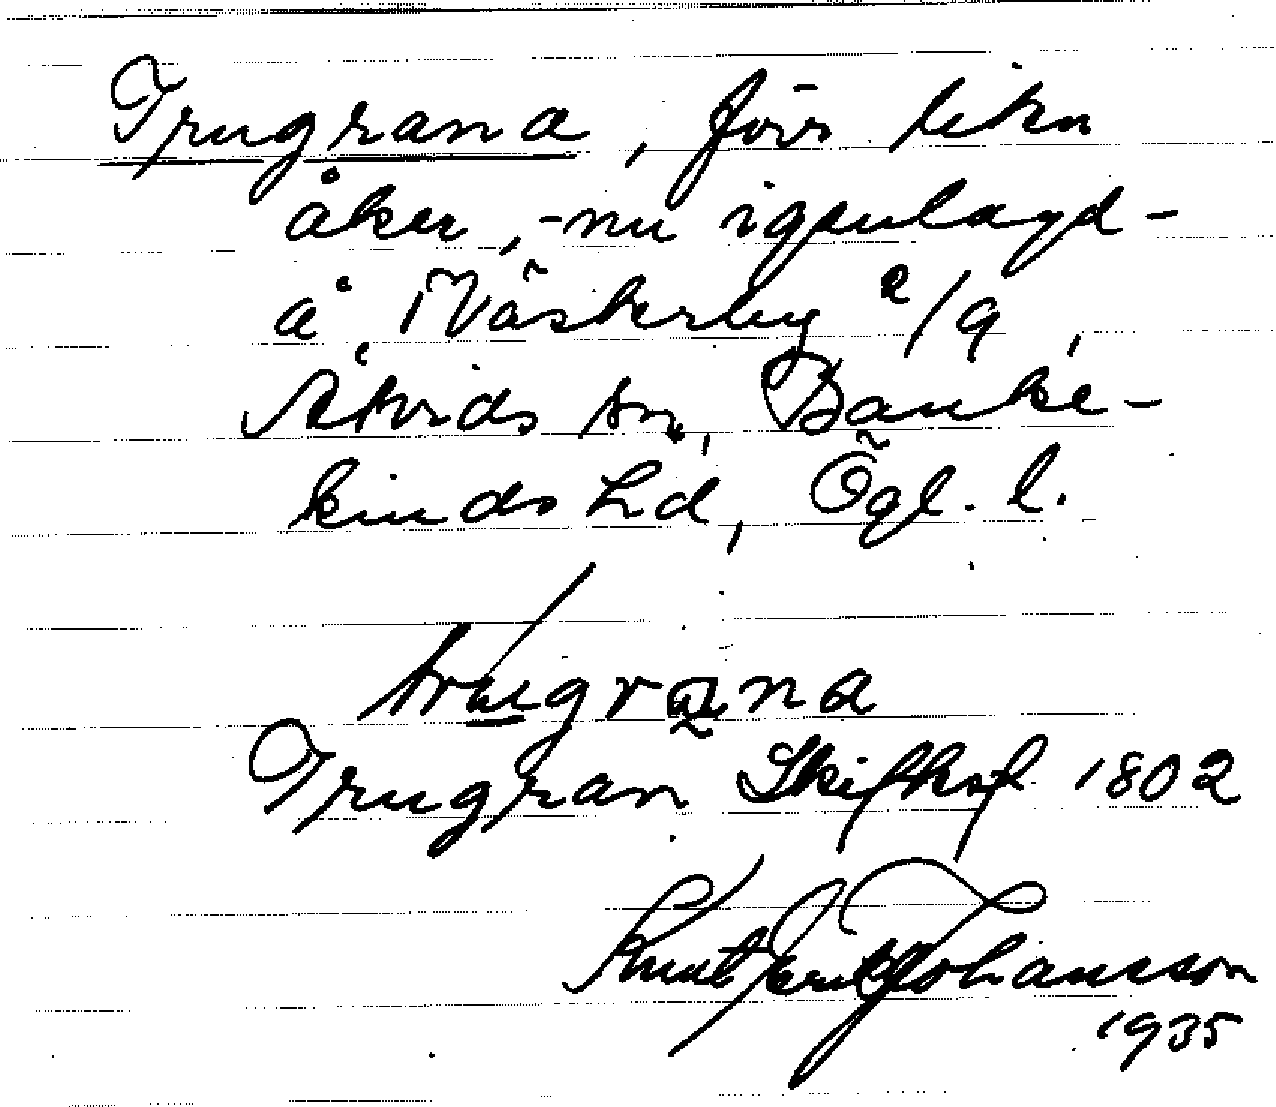 Trugrana, förr liten
åker, - nu igenlagd -
å Västerby 2/9,
Åtvids sn, Banke-
kinds hd, Ögl. l.
trugrana
Trugran Skifksf 1802
Knut Erik Johansson
1935